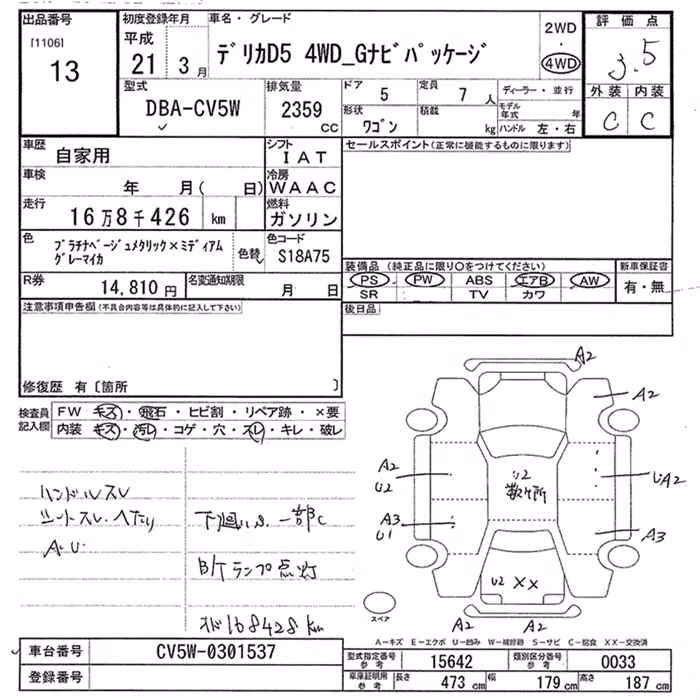 出品番号
[1106]
13
初度登録年月
平成
21 3月
車名・グレード
ﾃﾞﾘｶD5 4WD_Gﾅﾋﾞﾊﾟｯｹｰｼﾞ
2WD
・
4WD
評価点
3.5
外装 内装
C C
型式
DBA-CV5W
排気量
2359
CC
ドア
5
定員
7人
形状
ﾜｺﾞﾝ
積載
kg
ディーラー・並行
モデル年式 年
ハンドル 左・右
車歴
自家用
シフト
IAT
車検
年 月( 日)
冷房
WAAC
走行
16万8千426 km
燃料
ガソリン
色
ﾌﾟﾗﾁﾅﾍﾞｰｼﾞｭﾒﾀﾘｯｸ×ﾐﾃﾞｨｱﾑ
ｸﾞﾚｰﾏｲｶ
色替
色コード
S18A75
R券
14,810 円
名変通知期限
月 日
セールスポイント(正常に機能するものに限ります)
装備品(純正品に限り○をつけてください)
PS PW ABS エアB AW
SR TV カワ
新車保証書
有・無
後日品
注意事項申告欄(不具合内容等は具体的に記入して下さい)
修復歴 有〔箇所 〕
検査員
記入欄
FW キズ・飛石・ヒビ割・リペア跡・×要
内装 キズ・汚レ・コゲ・穴・スレ・キレ・破レ
ハンドルスレ
シートスレ、ヘたり
A.U.
下廻りS、一部C
B/Tランプ点灯
ｵﾄﾞ168428km
A2
A2
A2
U2
U2
数ヶ所
UA2
A3
U1
A3
U2 XX
A2
A2
スペア
A－キズ E－エクボ U－凹み W－補修跡 S－サビ C－腐食 XX－交換済
車台番号
CV5W-0301537
登録番号
型式指定番号
参考
15642
類別区分番号
参考
0033
車庫証明用
参考
長さ
473 cm
幅
179 cm
高さ
187 cm